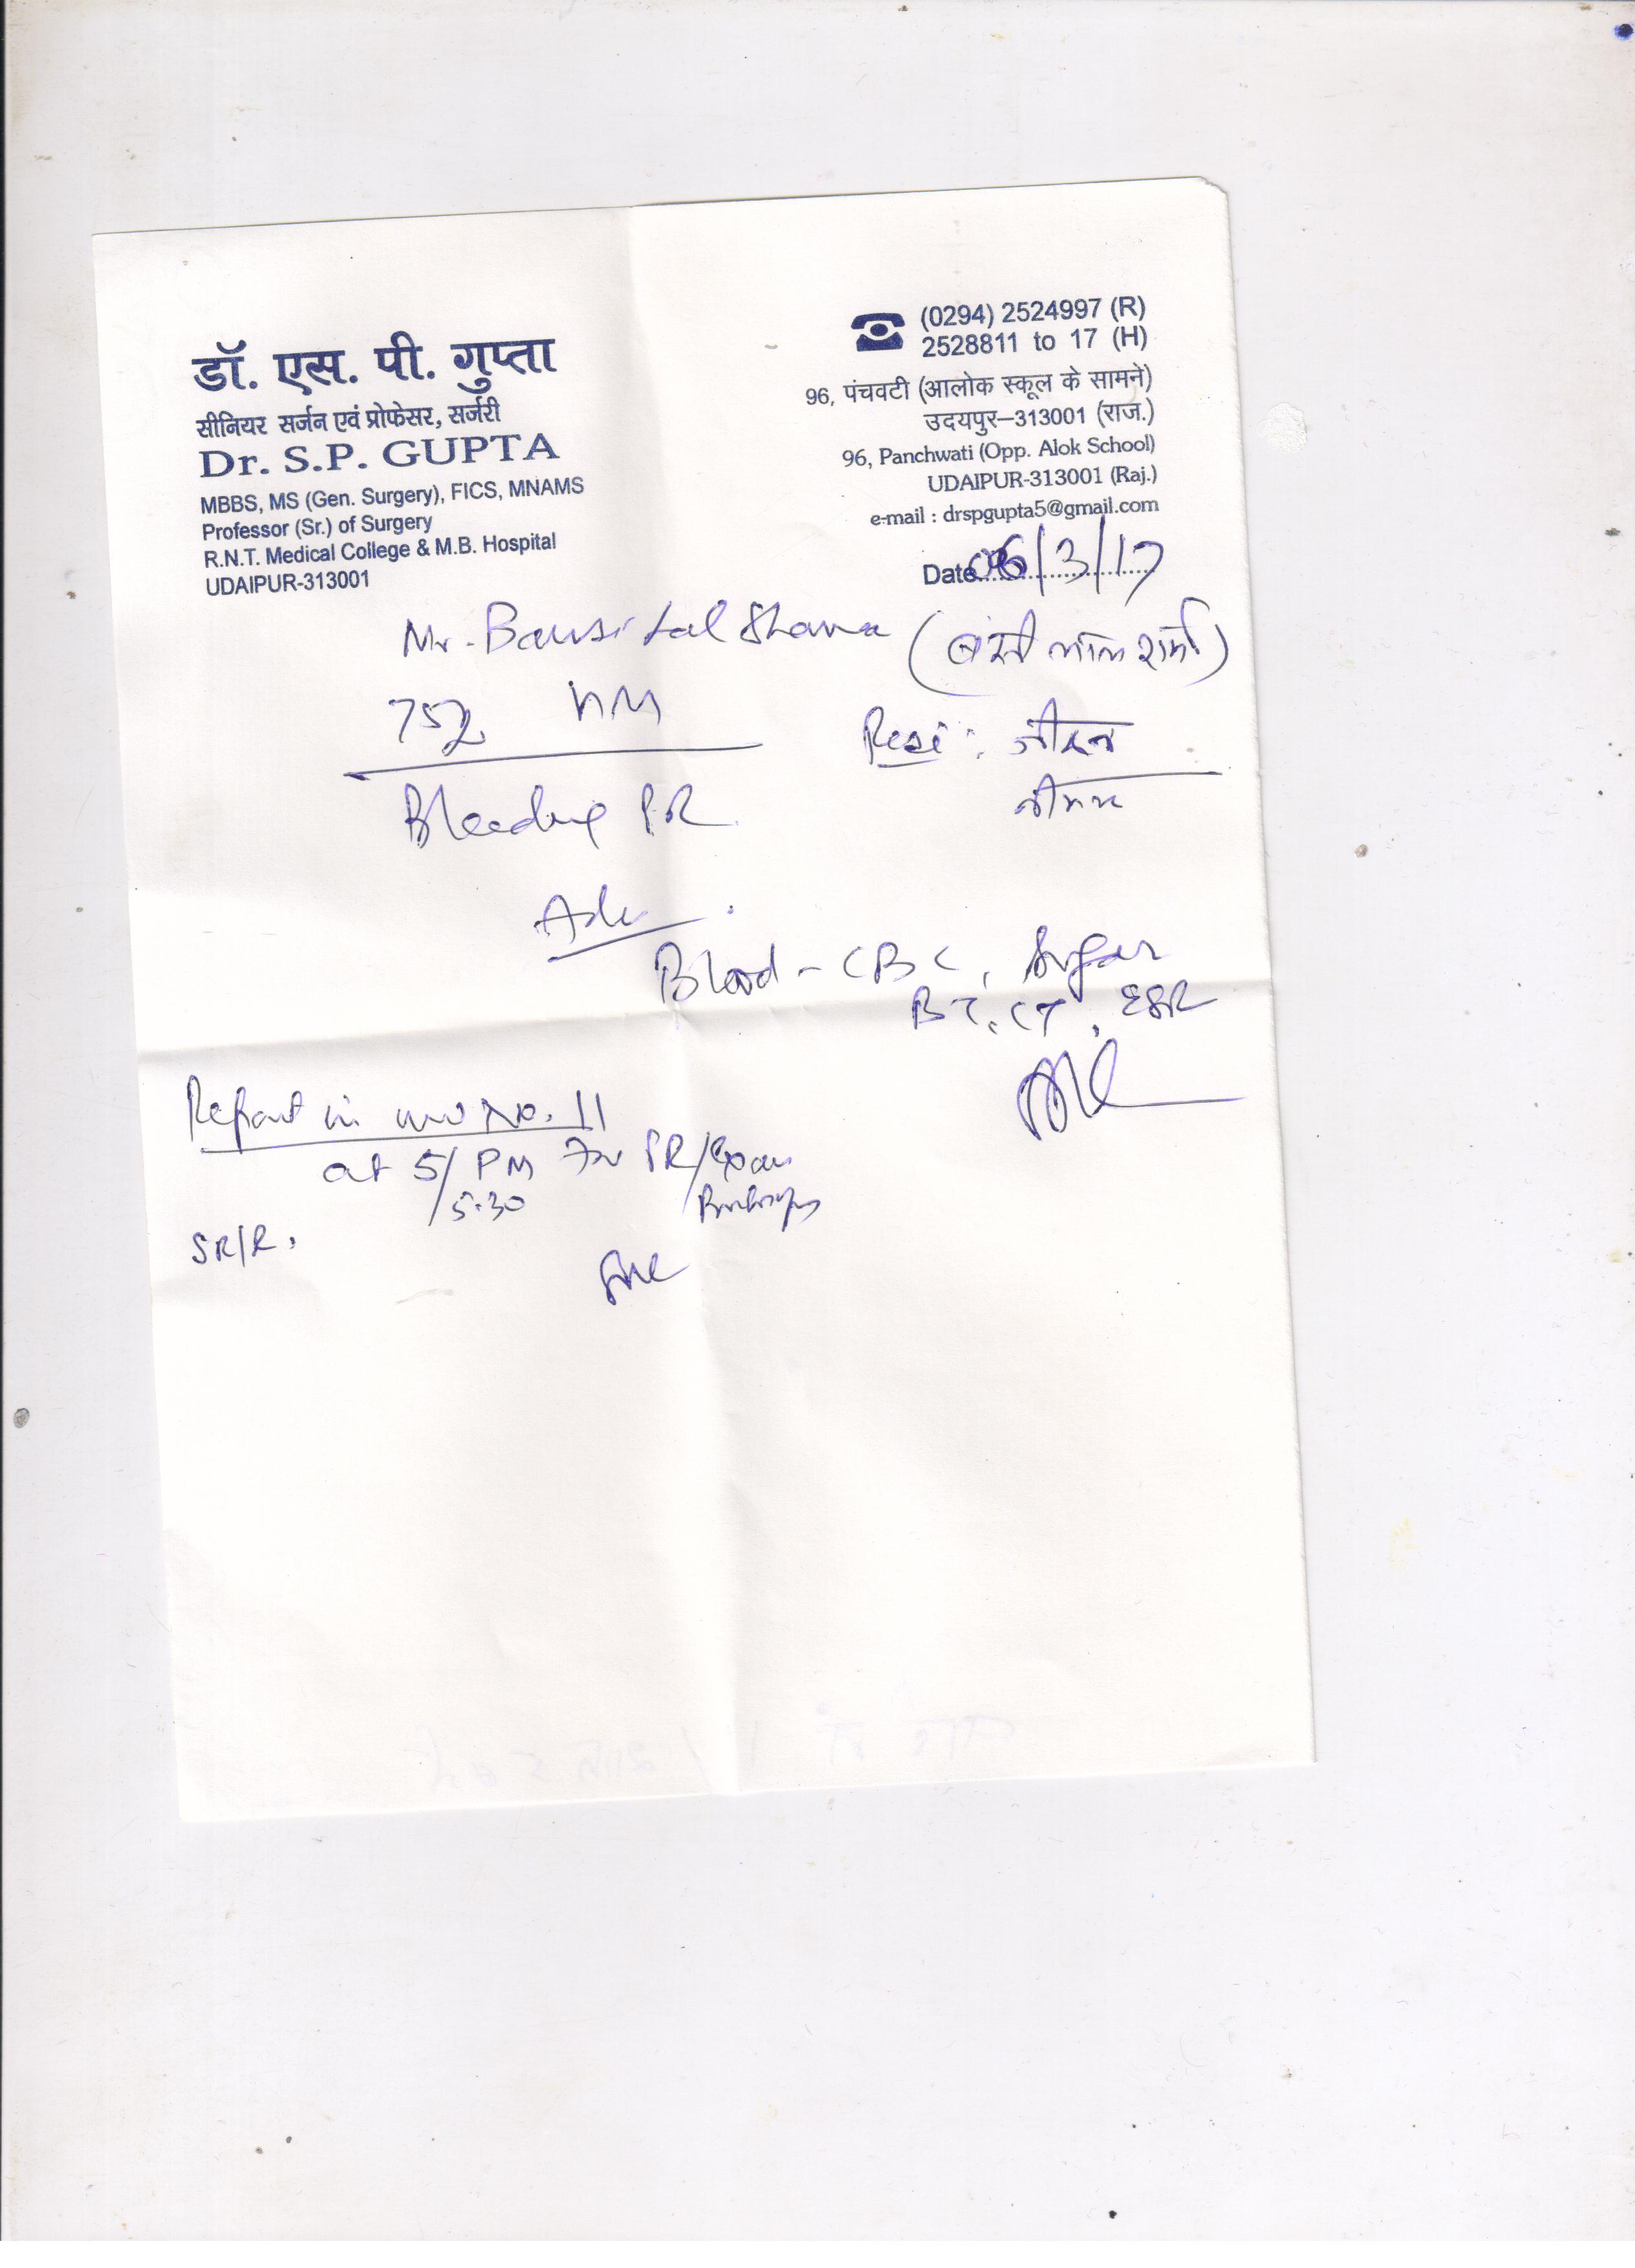 डॉ. एस. पी. गुप्ता
सीनियर सर्जन एवं प्रोफेसर, सर्जरी
Dr. S.P. GUPTA
MBBS, MS (Gen. Surgery), FICS, MNAMS
Professor (Sr.) of Surgery
R.N.T. Medical College & M.B. Hospital
UDAIPUR-313001
(0294) 2524997 (R)
2528811 to 17 (H)
96, पंचवटी (आलोक स्कूल के सामने)
उदयपुर–313001 (राज.)
96, Panchwati (Opp. Alok School)
UDAIPUR-313001 (Raj.)
e-mail : drspgupta5@gmail.com
Date 06/3/17
Mr. Bansi Lal Sharma (बंसी लाल शर्मा)
75 HM
Resi :
नीमच
Bleeding PR
Adv.
Blood - CBC, Sugar
BT, CT, ESR
Report in No. 11
at 5/PM For PR/Exam
5.30
SR/R.